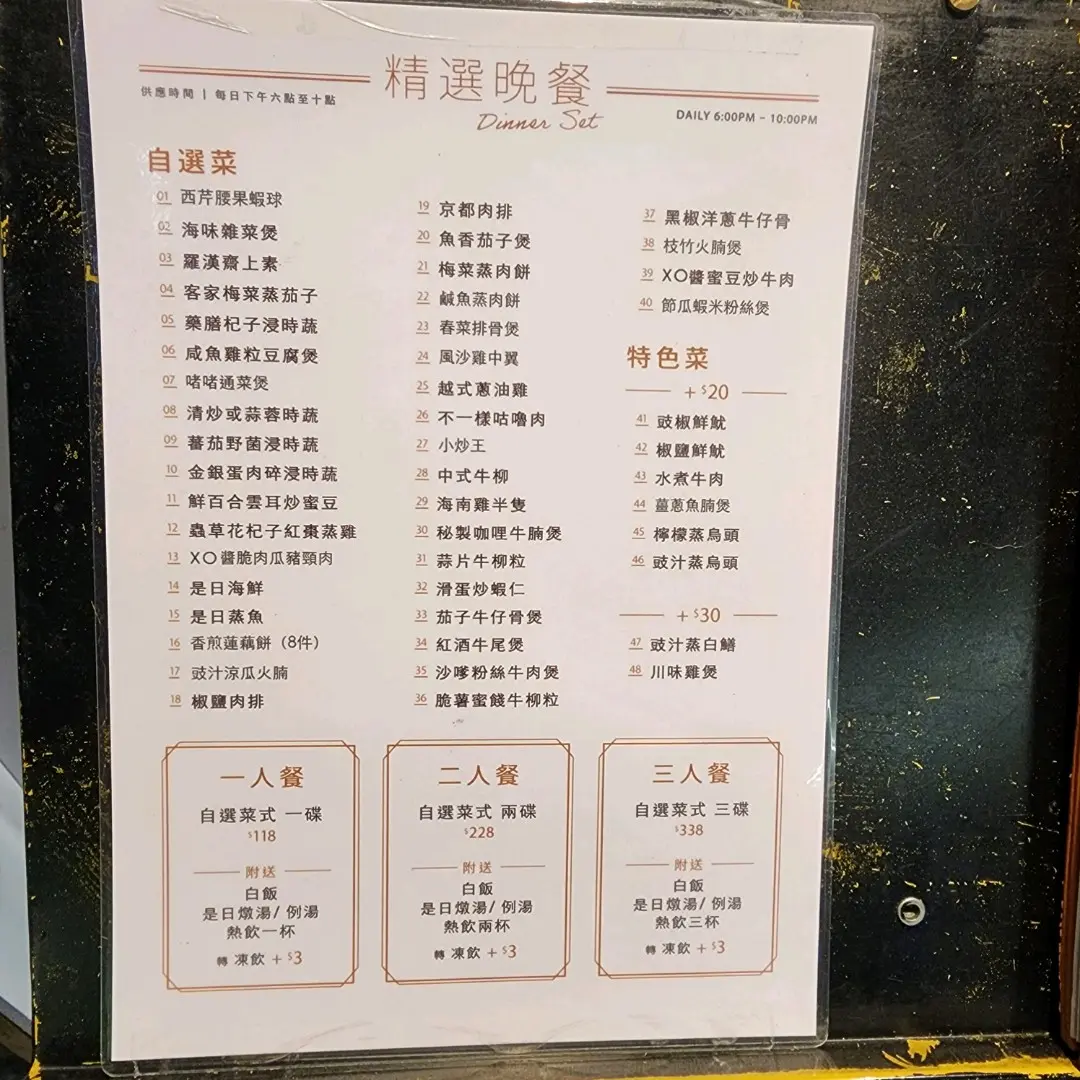 精選晚餐
Dinner Set
供應時間 | 每日下午六點至十點
DAILY 6:00PM – 10:00PM
自選菜
01 西芹腰果蝦球
02 海味雜菜煲
03 羅漢齋上素
04 客家梅菜蒸茄子
05 藥膳杞子浸時蔬
06 咸魚雞粒豆腐煲
07 啫啫通菜煲
08 清炒或蒜蓉時蔬
09 蕃茄野菌浸時蔬
10 金銀蛋肉碎浸時蔬
11 鮮百合雲耳炒蜜豆
12 蟲草花杞子紅棗蒸雞
13 XO醬脆肉瓜豬頸肉
14 是日海鮮
15 是日蒸魚
16 香煎蓮藕餅（8件）
17 豉汁涼瓜火腩
18 椒鹽肉排
19 京都肉排
20 魚香茄子煲
21 梅菜蒸肉餅
22 鹹魚蒸肉餅
23 春菜排骨煲
24 風沙雞中翼
25 越式蔥油雞
26 不一樣咕嚕肉
27 小炒王
28 中式牛柳
29 海南雞半隻
30 秘製咖哩牛腩煲
31 蒜片牛柳粒
32 滑蛋炒蝦仁
33 茄子牛仔骨煲
34 紅酒牛尾煲
35 沙嗲粉絲牛肉煲
36 脆薯蜜餞牛柳粒
37 黑椒洋蔥牛仔骨
38 枝竹火腩煲
39 XO醬蜜豆炒牛肉
40 節瓜蝦米粉絲煲
特色菜
+ $20
41 豉椒鮮魷
42 椒鹽鮮魷
43 水煮牛肉
44 薑蔥魚腩煲
45 檸檬蒸烏頭
46 豉汁蒸烏頭
+ $30
47 豉汁蒸白鱔
48 川味雞煲
一人餐
自選菜式 一碟
$118
附送
白飯
是日燉湯/ 例湯
熱飲一杯
轉 凍飲 + $3
二人餐
自選菜式 兩碟
$228
附送
白飯
是日燉湯/ 例湯
熱飲兩杯
轉 凍飲 + $3
三人餐
自選菜式 三碟
$338
附送
白飯
是日燉湯/ 例湯
熱飲三杯
轉 凍飲 + $3